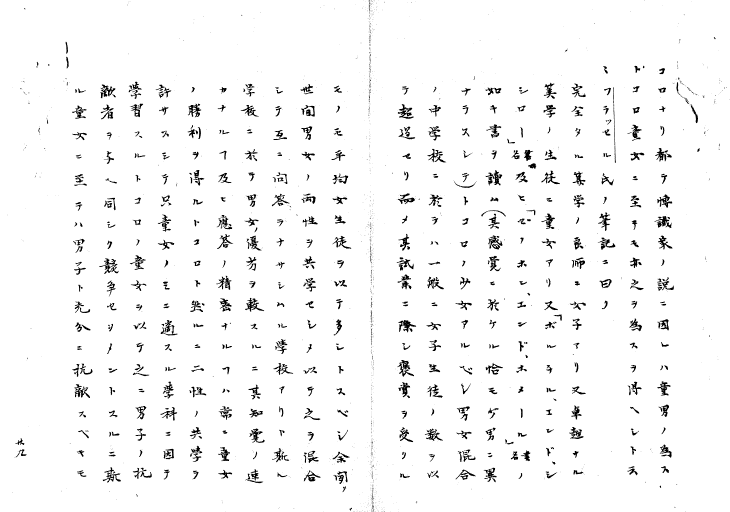 コロナリ都テ博識家ノ説ニ因レハ童男ノ為ス
トコロ童女ニ至テモ亦之ヲ為スヲ得ヘシトス
ミフラッセル氏ノ筆記ニ曰ク
完全タル算学ノ良師ニ女子アリ又卓越ナル
算学ノ生徒ニ童女アリ又「ポルテル、エンド、シ
シロー」書名及ヒ「デ、ホン、エンド、ホメール」書名ノ
如キ書ヲ読ム(其感覚ニ於ケル恰モ少男ニ異
ナラスシテ)トコロノ少女アルベシ男女混合
ノ中学校ニ於テハ一般ニ女子生徒ノ数ヲ以
テ超過セリ而メ其試業ニ際シ褒賞ヲ受クル
モノモ平均女生徒ヲ以テ多シトスベシ余聞ク
世間男女ノ両性ヲ共学セシメ以テ之ヲ混合
シテ互ニ問答ヲナサシムル学校アリト斯ル
学校ニ於テ男女ノ優劣ヲ較スルニ其知覚ノ速
カナルヿ及ヒ應答ノ精密ナルヿハ常ニ童女
ノ勝利ヲ得ルトコロト然ルニ二性ノ共学ヲ
許サスシテ只童女ノミニ適スル学科ニ因テ
學習スルトコロノ童女ヲ以テ之ニ男子ノ抗
敵者ヲ与ヘ同シク競争セシメントスルニ斯
ル童女ニ至テハ男子ト充分ニ抗敵スベキモ